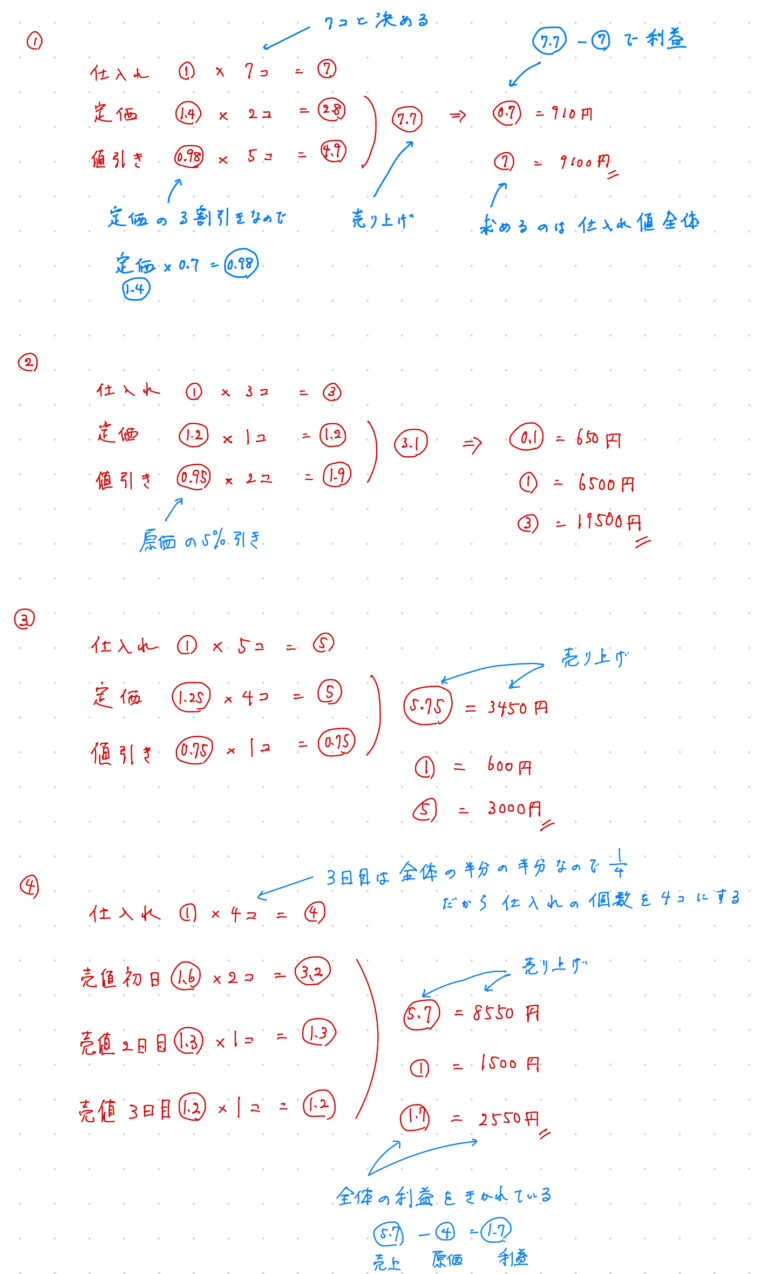 ① 7コと決める
仕入れ ① × 7コ = ⑦
定価 (1.4) × 2コ = (2.8)
値引き (0.98) × 5コ = (4.9)
(7.7) ⇒ (0.7) = 910円
⑦ = 9100円
(7.7) - ⑦ で利益
定価の3割引きなので
定価 × 0.7 = (0.98)
(1.4)
売り上げ
求めるのは仕入れ値全体
②
仕入れ ① × 3コ = ③
定価 (1.2) × 1コ = (1.2)
値引き (0.95) × 2コ = (1.9)
(3.1) ⇒ (0.1) = 650円
① = 6500円
③ = 19500円
原価の5%引き
③
仕入れ ① × 5コ = ⑤
定価 (1.25) × 4コ = ⑤
値引き (0.75) × 1コ = (0.75)
売り上げ
(5.75) = 3450円
① = 600円
⑤ = 3000円
④
3日目は全体の半分の半分なので 1/4
だから仕入れの個数を4コにする
仕入れ ① × 4コ = ④
売値初日 (1.6) × 2コ = (3.2)
売値2日目 (1.3) × 1コ = (1.3)
売値3日目 (1.2) × 1コ = (1.2)
売り上げ
(5.7) = 8550円
① = 1500円
(1.7) = 2550円
全体の利益をきかれている
(5.7) - ④ = (1.7)
売上 原価 利益